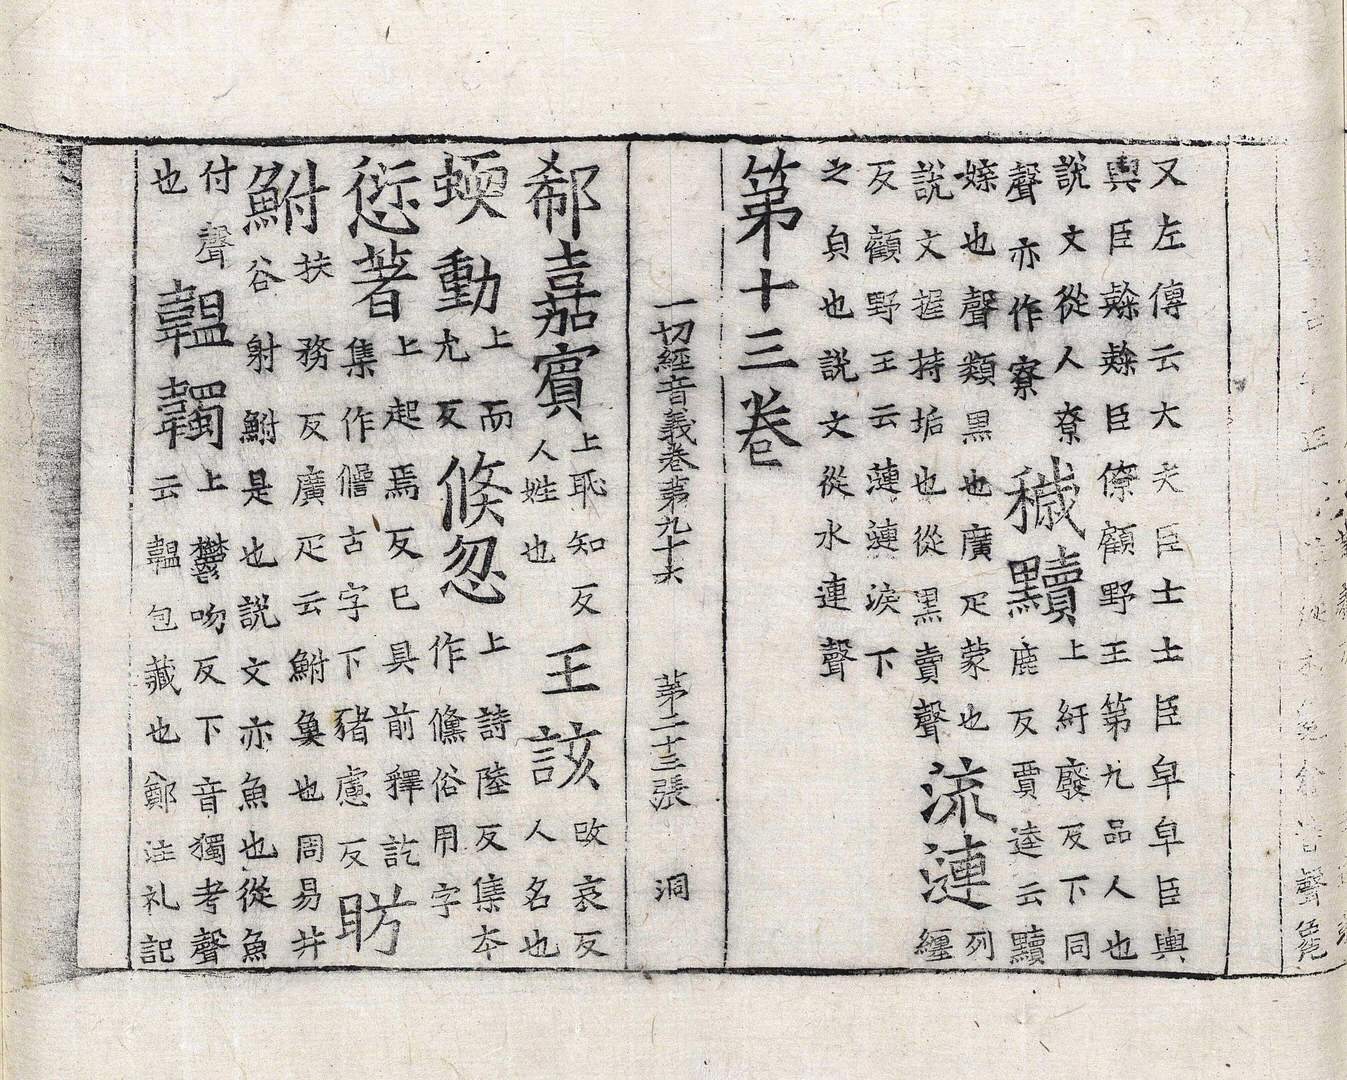 又左傳云大夫臣士士臣皁皁臣輿
輿臣𨽻𨽻臣僚顧野王第九品人也
說文從人尞
聲亦作寮
穢黷
上紆廢反下同
鹿反賈逵云黷
媟也聲類黑也廣疋蒙也
說文握持垢也從黑賣聲
流漣
列
纏
反顧野王云漣漣淚下
之皃也說文從水連聲
第十三卷
一切經音義卷第九十六 第二十三張 洞
郗嘉賓
上恥知反
人姓也
王該
改哀反
人名也
蝡動
上而
尤反
倏忽
上詩陸反集本
作儵俗用字
愆著
上起焉反已具前釋訖
集作𠎝古字下豬慮反
昉
鮒
扶務反廣疋云鮒魚也周易井
谷射鮒是也說文亦魚也從魚
付聲
也
韞韣
上鬱吻反下音獨考聲
云韞包藏也鄭注礼記